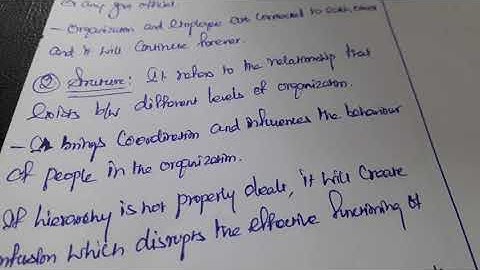 or any gov official.
- Organization and employee are connected to each other
and it will continue forever.
② Structure: It refers to the relationship that
Exists b/w different levels of organization.
- It brings Coordination and influences the behaviour
of people in the organization.
If hierarchy is not properly dealt, it will create
confusion which disrupts the effective functioning of